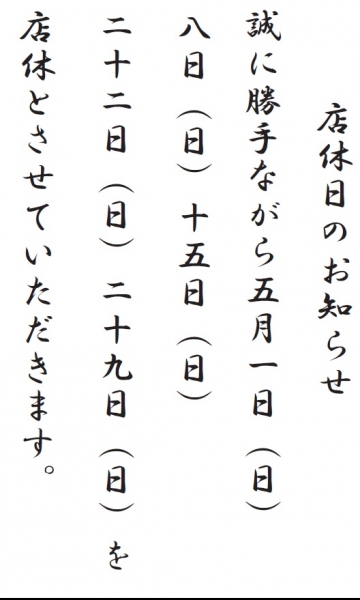 店休日のお知らせ
誠に勝手ながら五月一日（日）
八日（日）十五日（日）
二十二日（日）二十九日（日）を
店休とさせていただきます。